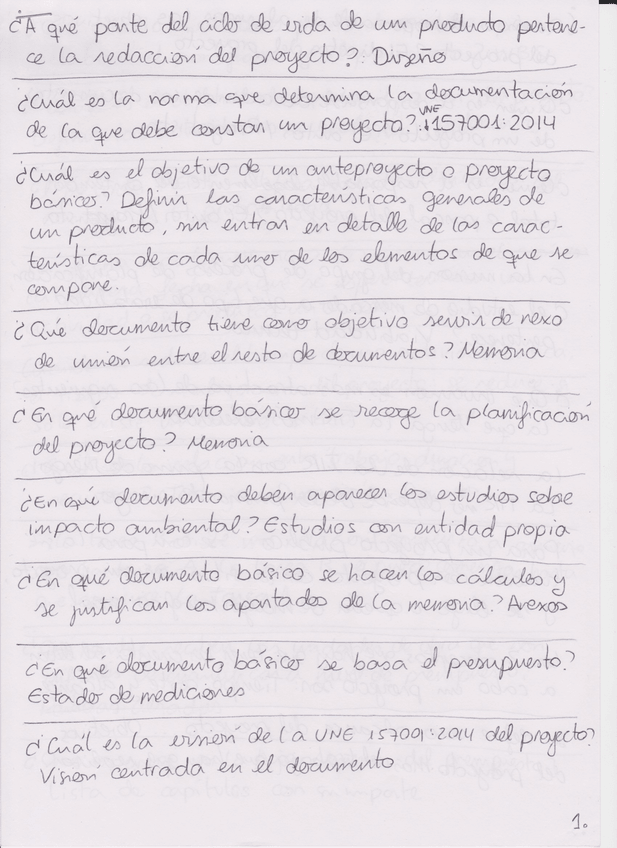 ¿A qué parte del ciclo de vida de un producto pertene-
ce la redacción del proyecto? Diseño
¿Cuál es la norma que determina la documentación
de la que debe constar un proyecto? UNE 157001:2014
¿Cuál es el objetivo de un anteproyecto o proyecto
básico? Definir las características generales de
un producto, sin entrar en detalle de las carac-
terísticas de cada uno de los elementos de que se
compone.
¿Qué documento tiene como objetivo servir de nexo
de unión entre el resto de documentos? Memoria
¿En qué documento básico se recoge la planificación
del proyecto? Memoria
¿En qué documento deben aparecer los estudios sobre
impacto ambiental? Estudios con entidad propia
¿En qué documento básico se hacen los cálculos y
se justifican los apartados de la memoria? Anexos
¿En qué documento básico se basa el presupuesto?
Estado de mediciones
¿Cuál es la visión de la UNE 157001:2014 del proyecto?
Visión centrada en el documento
1.